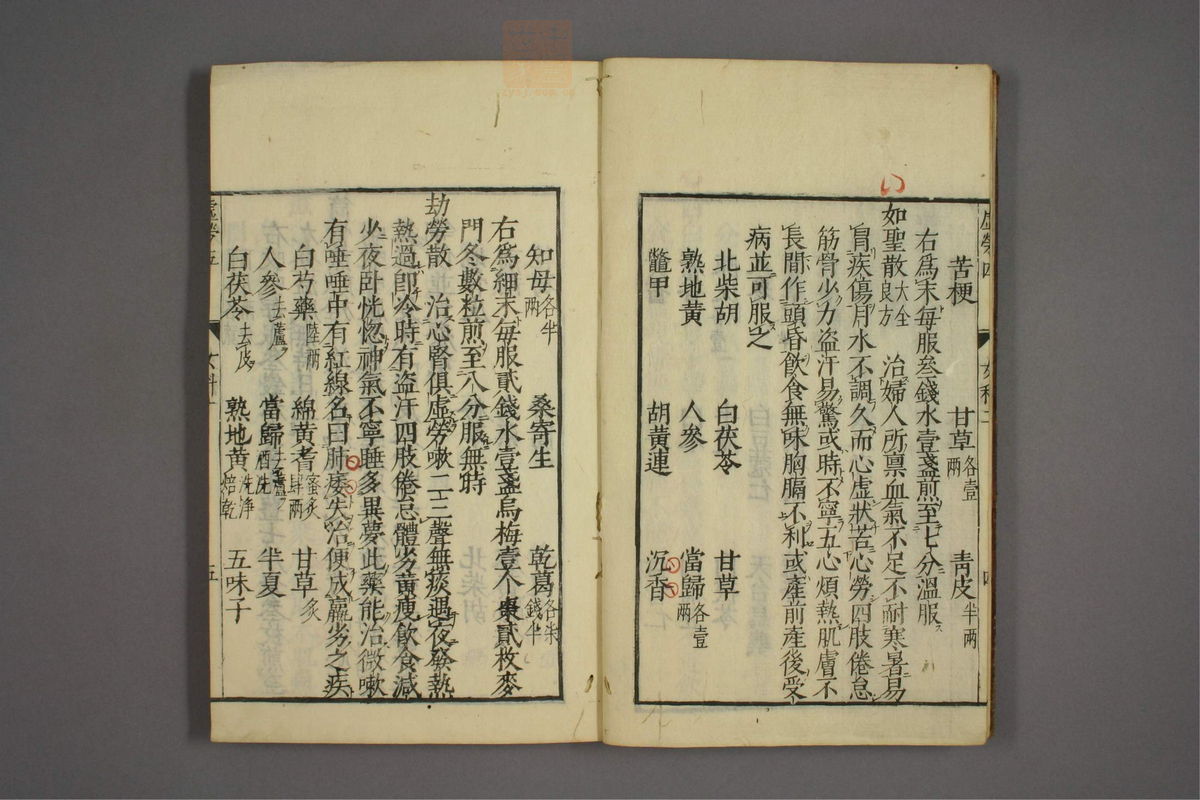 苦梗　甘草各壹兩　青皮半兩
右爲末每服叁錢水壹盞煎至七分溫服
如聖散大全良方　治婦人所稟血氣不足不耐寒暑易
冒疾傷月水不調久而心虛狀若心勞四肢倦怠
筋骨少力盜汗易驚或時不寧五心煩熱肌膚不
長間作頭昏飲食無味胸膈不利或產前產後受
病並可服之
北柴胡　白茯苓　甘草
熟地黃　人參　當歸各壹兩
鼈甲　胡黃連　沉香
知母各半兩　桑寄生　乾葛各柒錢半
右爲細末每服貳錢水壹盞烏梅壹个棗貳枚麥
門冬數粒煎至八分服無時
劫勞散　治心腎俱虛勞嗽二三聲無痰遇夜發熱
熱過即冷時有盜汗四肢倦怠體劣黃瘦飲食減
少夜卧恍惚神氣不寧睡多異夢此藥能治微嗽
有唾唾中有紅線名曰肺痿失治便成羸劣之疾
白芍藥陸兩　綿黃耆蜜炙肆兩　甘草炙
人參去蘆　當歸去蘆酒洗　半夏
白茯苓去皮　熟地黃洗淨焙乾　五味子
虛勞五　女科二　五